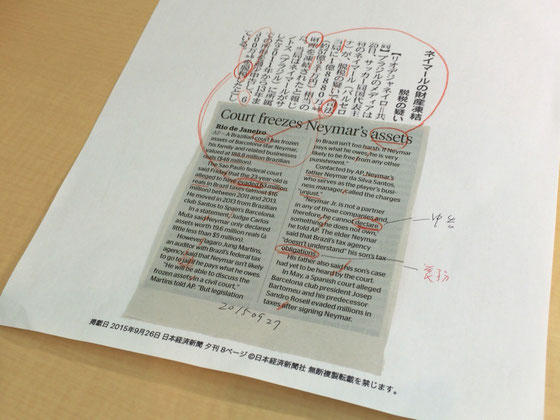 ネイマールの財産凍結
脱税の疑い
【リオデジャネイロ=共
同】ブラジルのメディアは
Court freezes Neymar's assets
Rio de Janeiro
AP – A Brazilian court has frozen
assets of Barcelona star Neymar,
his family and related businesses
valued at 188.8 million Brazilian
reals ($48 million).
The Sao Paulo federal court
said Friday that the 23-year-old is
alleged to have evaded 63 million
reals in Brazil taxes (almost $16
million) between 2011 and 2013.
He moved in 2013 from Brazilian
club Santos to Spain's Barcelona.
In a statement, Judge Carlos
Muta said Neymar only declared
assets worth 19.6 million reals (a
little less than $5 million).
However, Iagaro Jung Martins,
an auditor with Brazil's federal tax
agency, said that Neymar isn't likely
to go to jail if he pays what he owes.
"He will be able to discuss the
frozen assets in a civil court,"
Martins told AP. "Tax legislation
in Brazil isn't too harsh. If Neymar
pays what he owes, he is very
likely to be free from any other
punishment."
Contacted by AP, Neymar's
father Neymar da Silva Santos,
who serves as the player's busi-
ness manager, called the charges
"unjust."
"Neymar Jr. is not a partner
in any of those companies and,
therefore, he cannot declare
something he does not own,"
he told AP. The elder Neymar
said that Brazil's tax agency
"doesn't understand" his son's tax
obligations.
His father also said his son's case
had yet to be heard by the court.
In May, a Spanish court alleged
Barcelona club president Josep
Bartomeu and his predecessor
Sandro Rosell evaded millions in
taxes after signing Neymar.
申告
義務
20150927
掲載日 2015年9月26日 日本経済新聞 夕刊 8ページ ©日本経済新聞社 無断複製転載を禁じます。